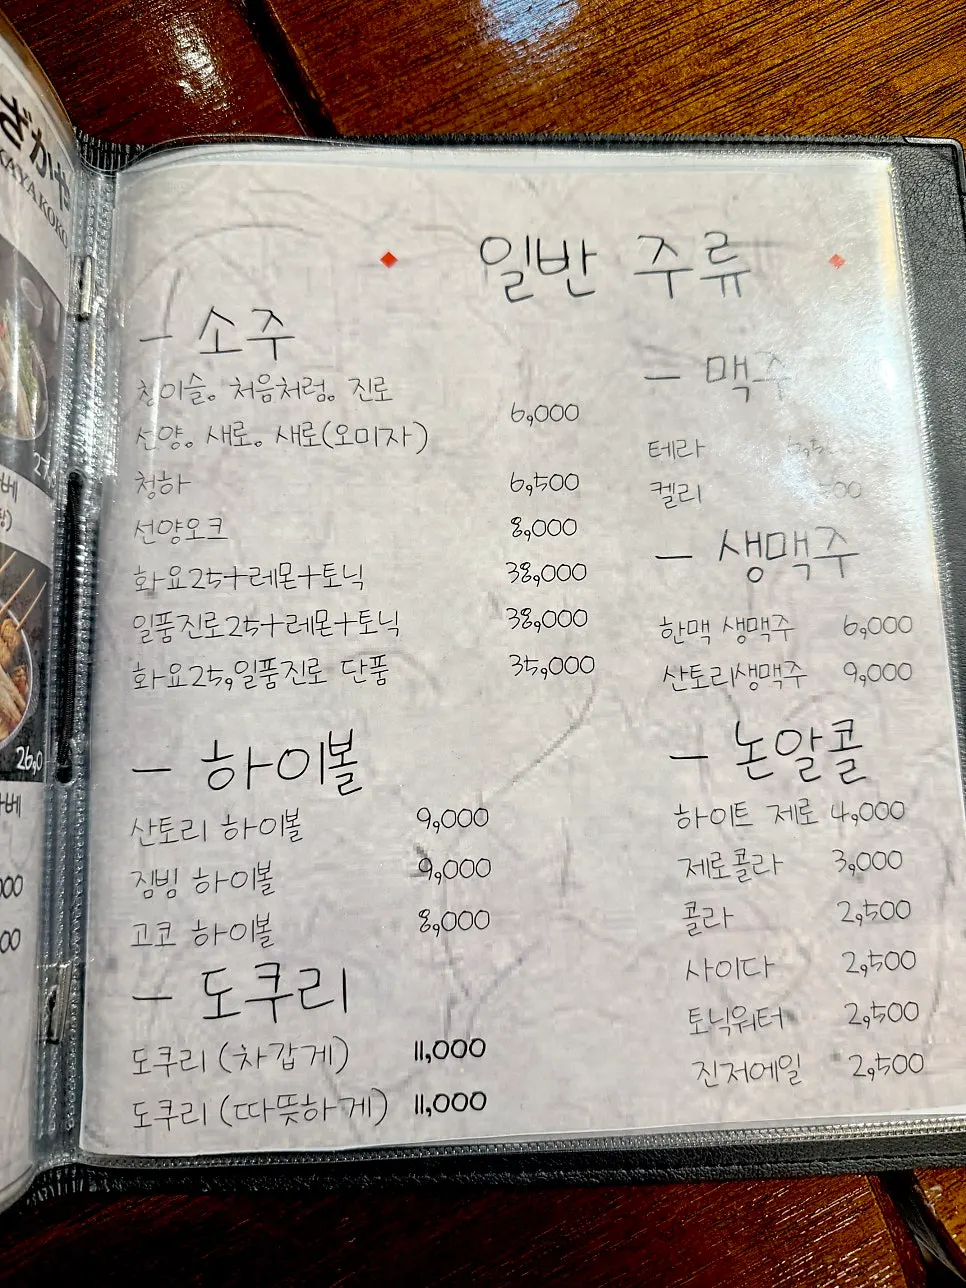 ざかや
KAYAKOKO
26,0
일반 주류
- 소주
참이슬。 처음처럼。 진로
선양。 새로。 새로(오미자)
6,000
청하 6,500
선양오크 8,000
화요25+레몬+토닉 38,000
일품진로25+레몬+토닉 38,000
화요25,일품진로 단품 35,000
- 하이볼
산토리 하이볼 9,000
짐빔 하이볼 9,000
고코 하이볼 8,000
- 도쿠리
도쿠리 (차갑게) 11,000
도쿠리 (따뜻하게) 11,000
- 맥주
테라
켈리
- 생맥주
한맥 생맥주 6,000
산토리생맥주 9,000
- 논알콜
하이트 제로 4,000
제로콜라 3,000
콜라 2,500
사이다 2,500
토닉워터 2,500
진저에일 2,500